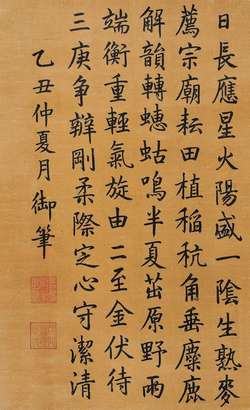 日長應星火陽盛一陰生熟麥
薦宗廟耘田植稻秔角垂麋鹿
解韻轉蟪蛄鳴半夏茁原野雨
端衡重輕氣旋由二至金伏待
三庚爭辯剛柔際定心守潔清
乙丑仲夏月御筆